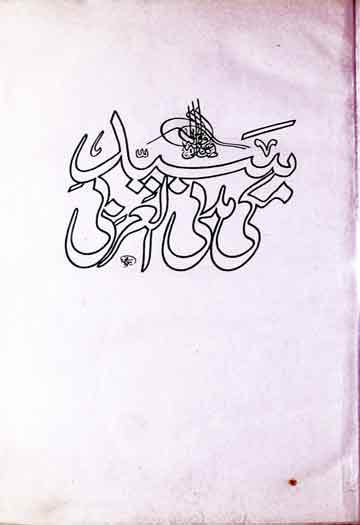 سیدِ
مکی مدنی العربی